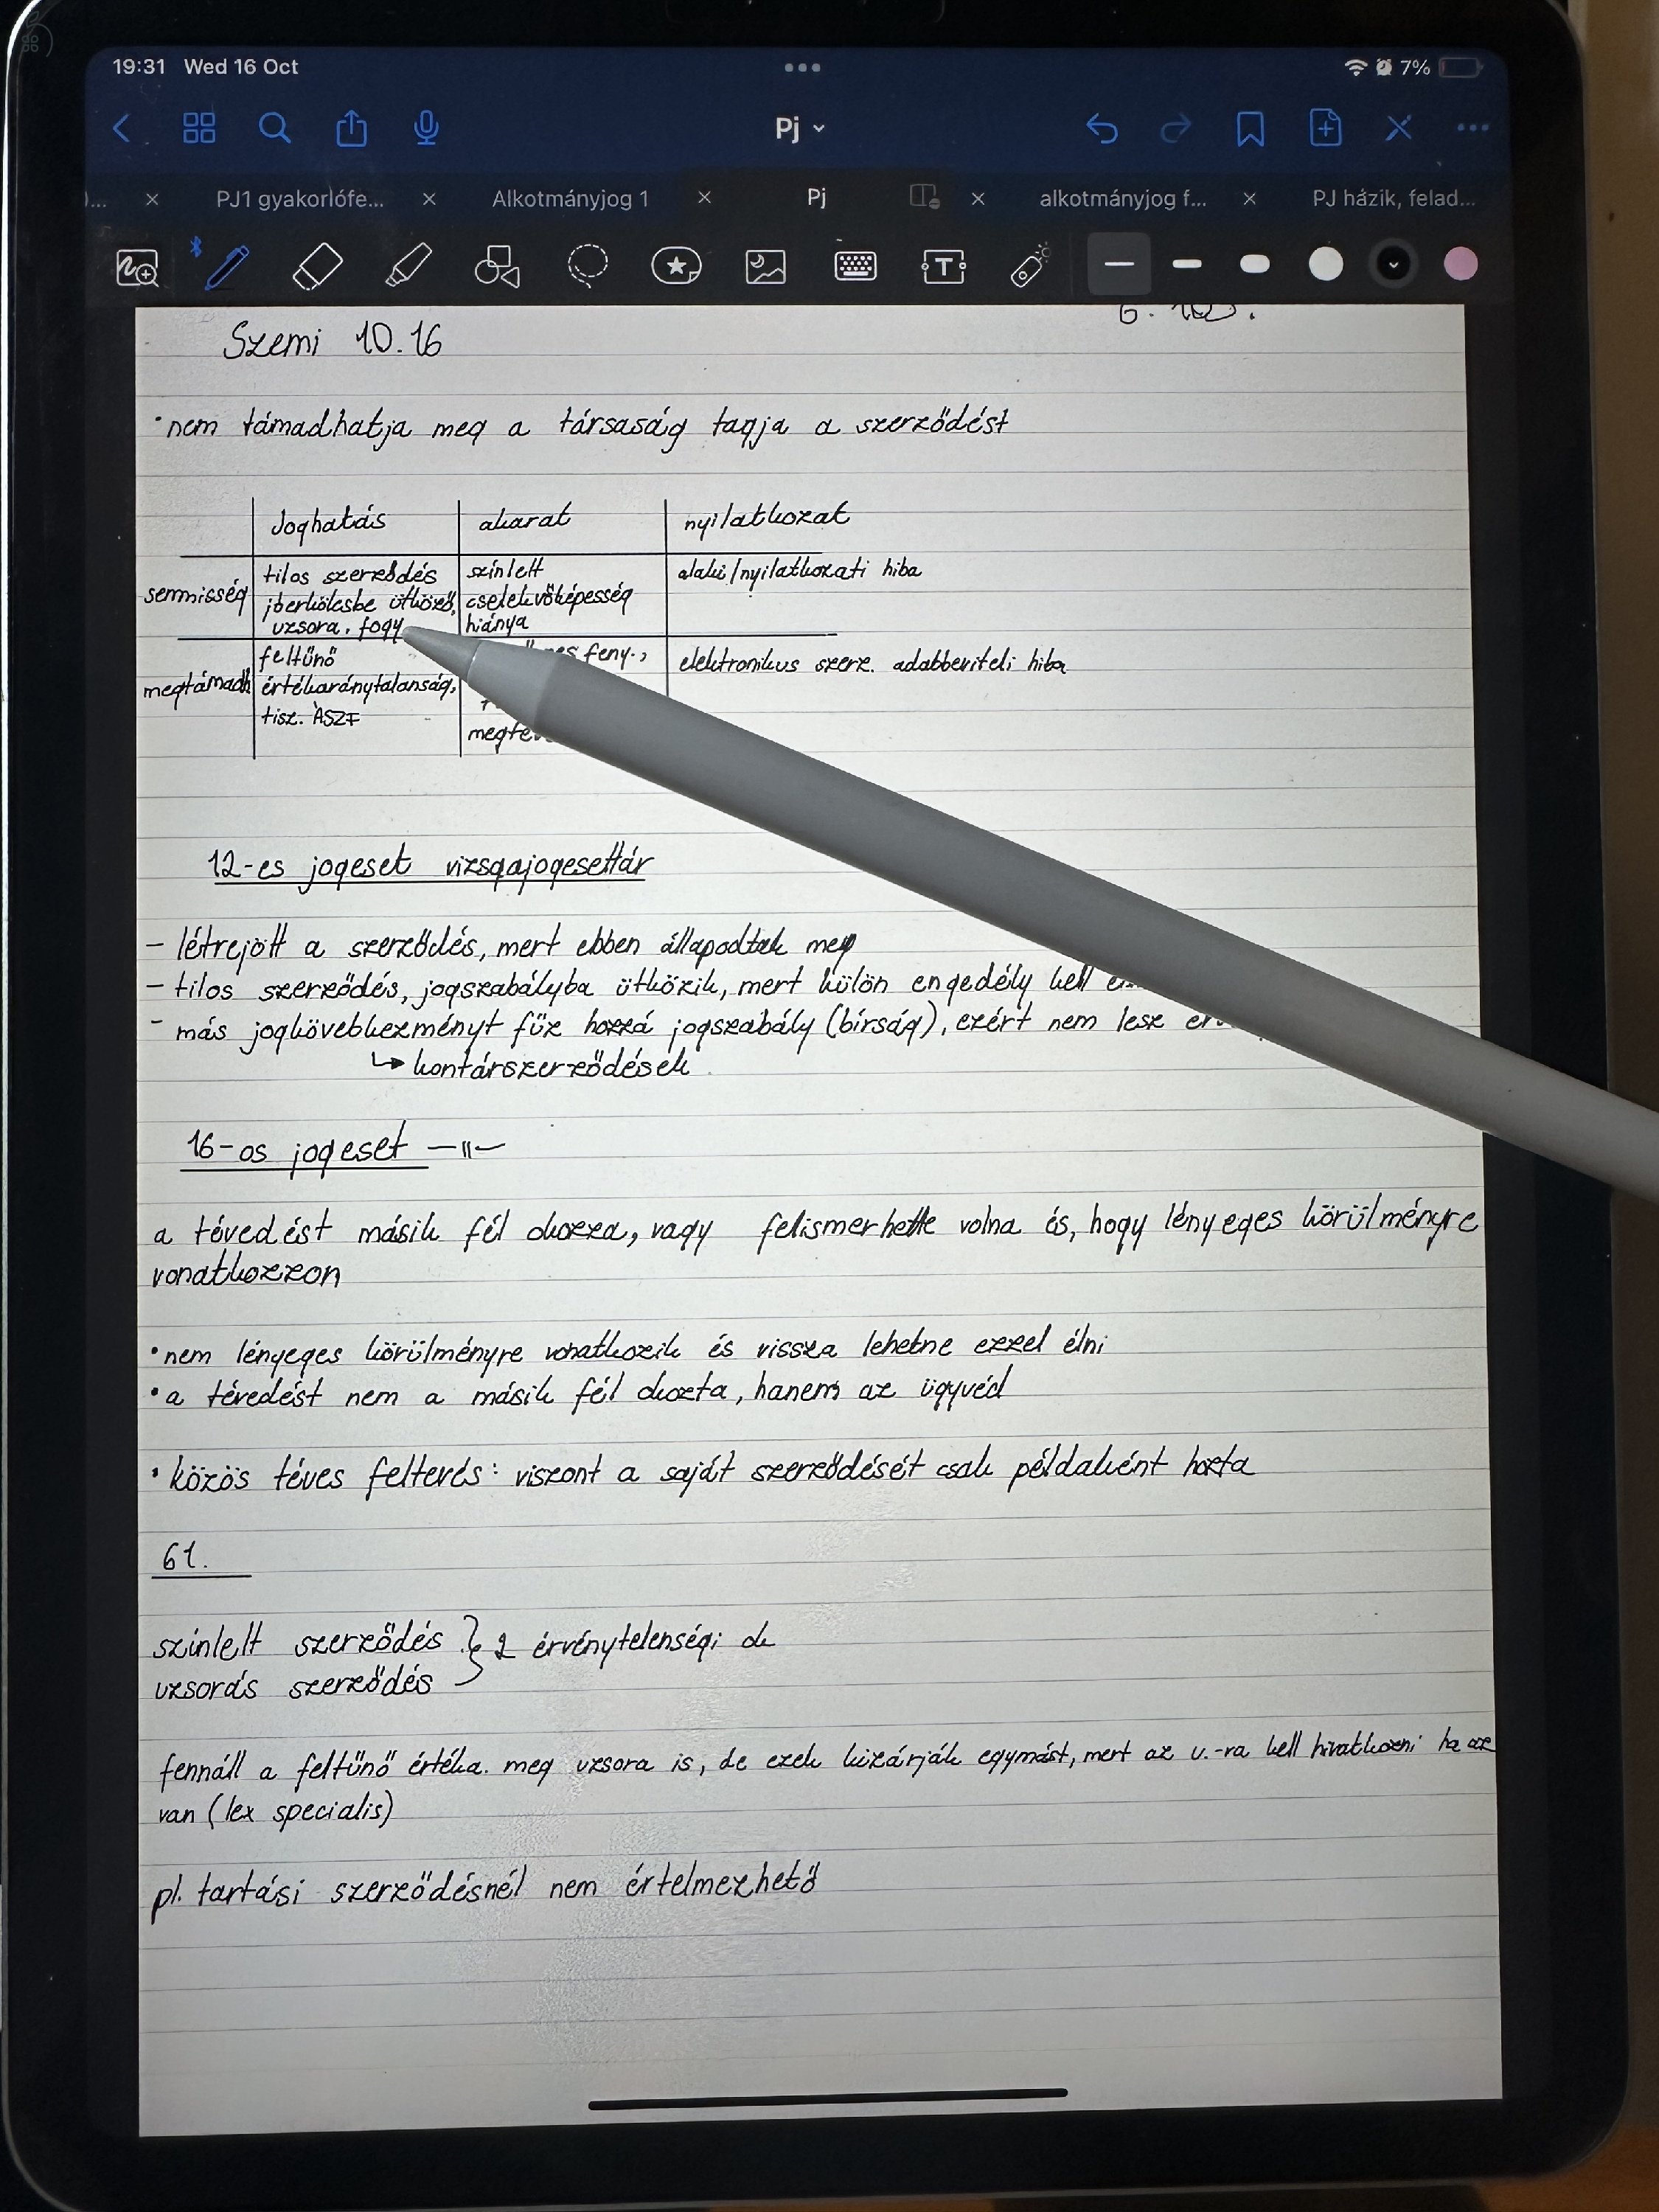 19:31 Wed 16 Oct
7%
Pj
)... × PJ1 gyakorlófe... × Alkotmányjog 1 × Pj × alkotmányjog f... × PJ házik, felad...
T
Szemi 10.16
• nem támadhatja meg a társaság tagja a szerződést
Joghatás akarat nyilatkozat
semmisség
tilos szerződés
jóerkölcsbe ütköző,
uzsora, fogy
színlelt
cselekvőképesség
hiánya
alaki/nyilatkozati hiba
megtámadh
feltűnő
értékaránytalanság,
tisz. ÁSZF
feny.,
elektronikus szerz. adabbeviteli hiba
12-es jogeset vizsgajogesettár
- létrejött a szerződés, mert ebben állapodtak meg
- tilos szerződés, jogszabályba ütközik, mert külön engedély kell
- más jogkövebkezményt fűz hozzá jogszabály (bírság), ezért nem lesz
↳ kontárszerződések
16-os jogeset —"—
a tévedést másik fél okozza, vagy felismerhette volna és, hogy lényeges körülményre
vonatkozzon
• nem lényeges körülményre vonatkozik és vissza lehetne ezzel élni
• a tévedést nem a másik fél okozta, hanem az ügyvéd
• közös téves felterés: viszont a saját szerződését csak példaként hozta
61.
színlelt szerződés } 2 érvénytelenségi ok
uzsorás szerződés
fennáll a feltűnő értéka. meg uzsora is, de ezek kizárják egymást, mert az u.-ra kell hivatkozni ha az
van (lex specialis)
pl. tartási szerződésnél nem értelmezhető